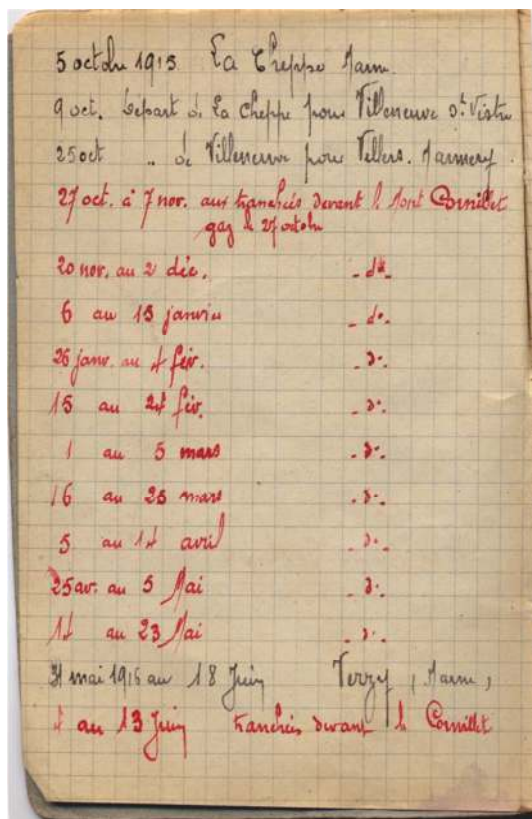 5 octobre 1915. La Cheppe Marne.
9 oct. Départ de La Cheppe pour Villeneuve St. Vistre
25 oct „ de Villeneuve pour Villers. Marmery.
27 oct. à 7 nov. aux tranchées devant le Mont Cornillet
gaz le 27 octobre
20 nov. au 2 déc. - do -
6 au 15 janvier - do -
26 janv. au 4 fév. - do -
15 au 24 fév. - do -
1 au 5 mars - do -
16 au 25 mars - do -
5 au 14 avril - do -
25 av. au 5 Mai - do -
14 au 23 Mai - do -
31 mai 1916 au 18 Juin Verzy (Marne)
4 au 13 Juin tranchées devant le Cornillet